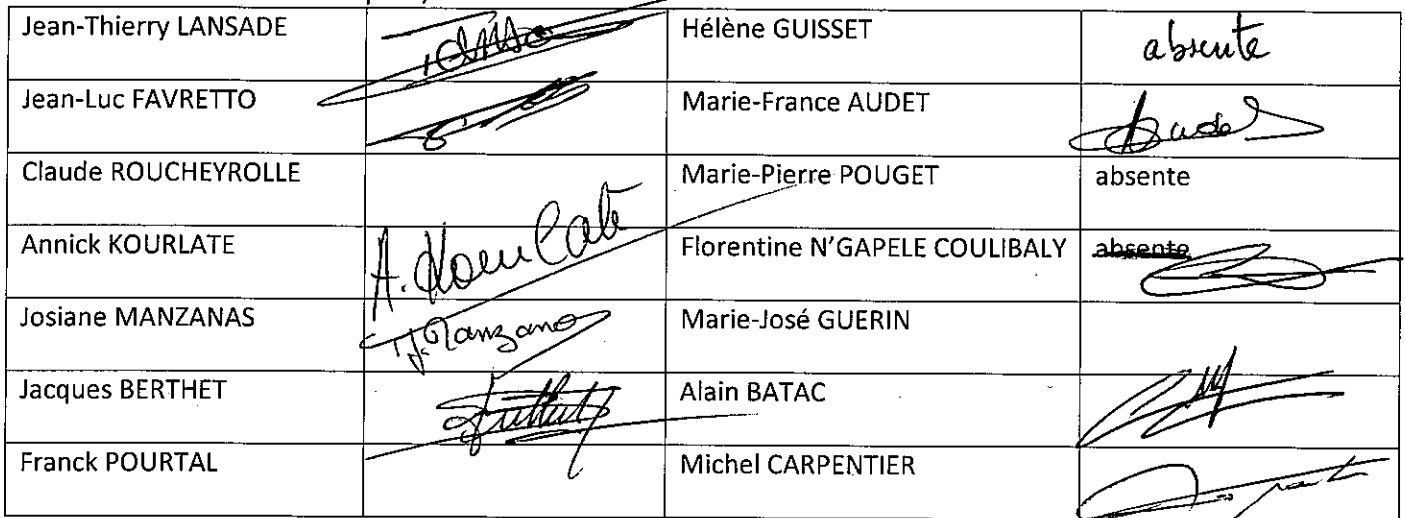 Jean-Thierry LANSADE Hélène GUISSET absente
Jean-Luc FAVRETTO Marie-France AUDET
Claude ROUCHEYROLLE Marie-Pierre POUGET absente
Annick KOURLATE A. Kourlate Florentine N'GAPELE COULIBALY absente
Josiane MANZANAS Marie-José GUERIN
Jacques BERTHET Alain BATAC
Franck POURTAL Michel CARPENTIER